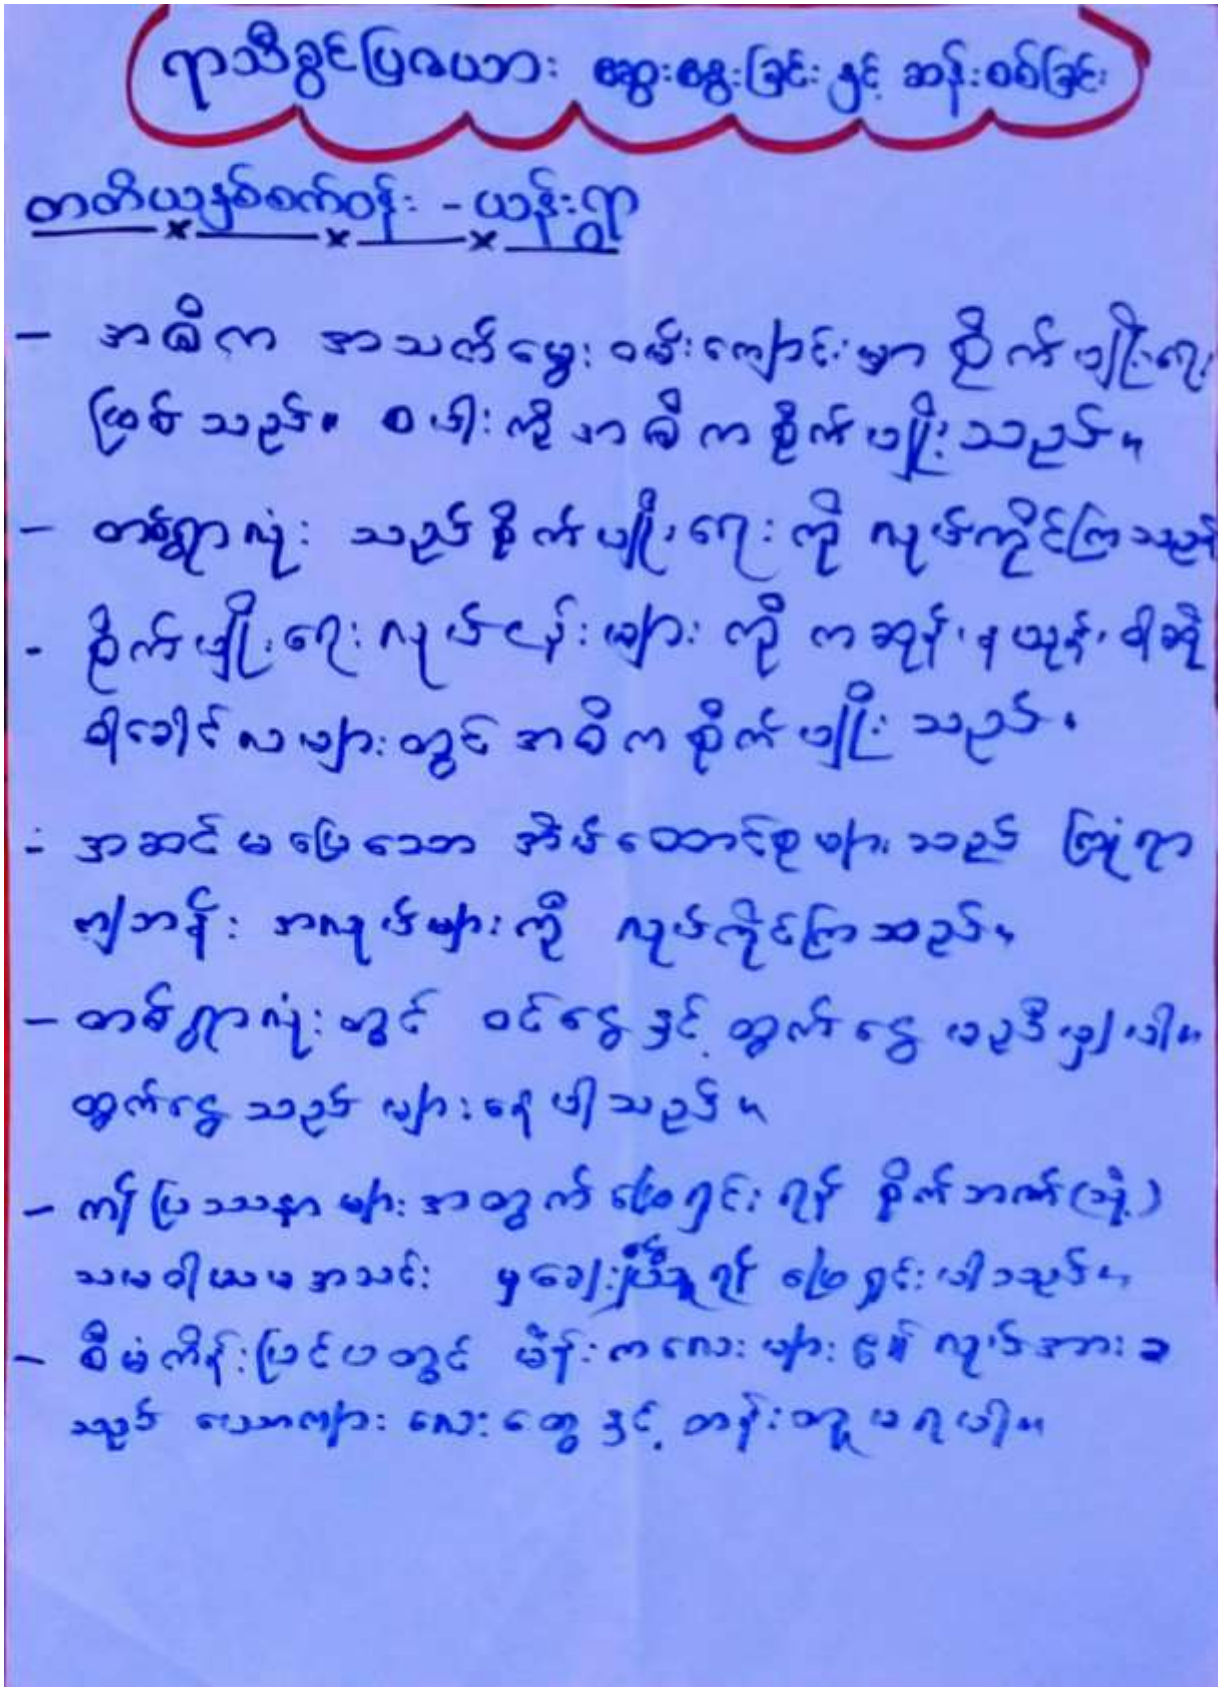 ရာသီခွင်ပြဇယား ဆွေးနွေးခြင်း နှင့် ဆန်းစစ်ခြင်း
တတိယနှစ်စက်ဝန်း - ယန်းရွာ
- အဓိက အသက်မွေး ဝမ်းကျောင်းမှာ စိုက်ပျိုးရေး
ဖြစ်သည်။ စပါးကို အဓိကစိုက်ပျိုးသည်။
- တစ်ရွာလုံး သည်စိုက်ပျိုးရေးကို လုပ်ကိုင်ကြသည်
- စိုက်ပျိုးရေးလုပ်ငန်းများ ကို ကဆုန်၊ နယုန်၊ ဝါဆို
ဝါခေါင်လများတွင် အဓိက စိုက်ပျိုး သည်။
- အဆင်မပြေသော အိမ်ထောင်စုများ သည် ကြုံရာ
ကျဘန်း အလုပ်များကို လုပ်ကိုင်ကြသည်။
- တစ်ရွာလုံးတွင် ဝင်ငွေနှင့် ထွက်ငွေ မညီမျှပါ။
ထွက်ငွေသည် များနေပါသည်။
- ကျ ပြဿနာများအတွက် ဖြေရှင်းရန် စိုက်ဘဏ် (သို့)
သမဝါယမအသင်း မှချေးငှါးရန် ဖြေရှင်းပါသည်။
- စီမံကိန်းပြင်ပတွင် မိန်းကလေးများ ၏ လုပ်အားခ
သည် ယောကျာ်းလေးတွေနှင့် တန်းတူမရပါ။